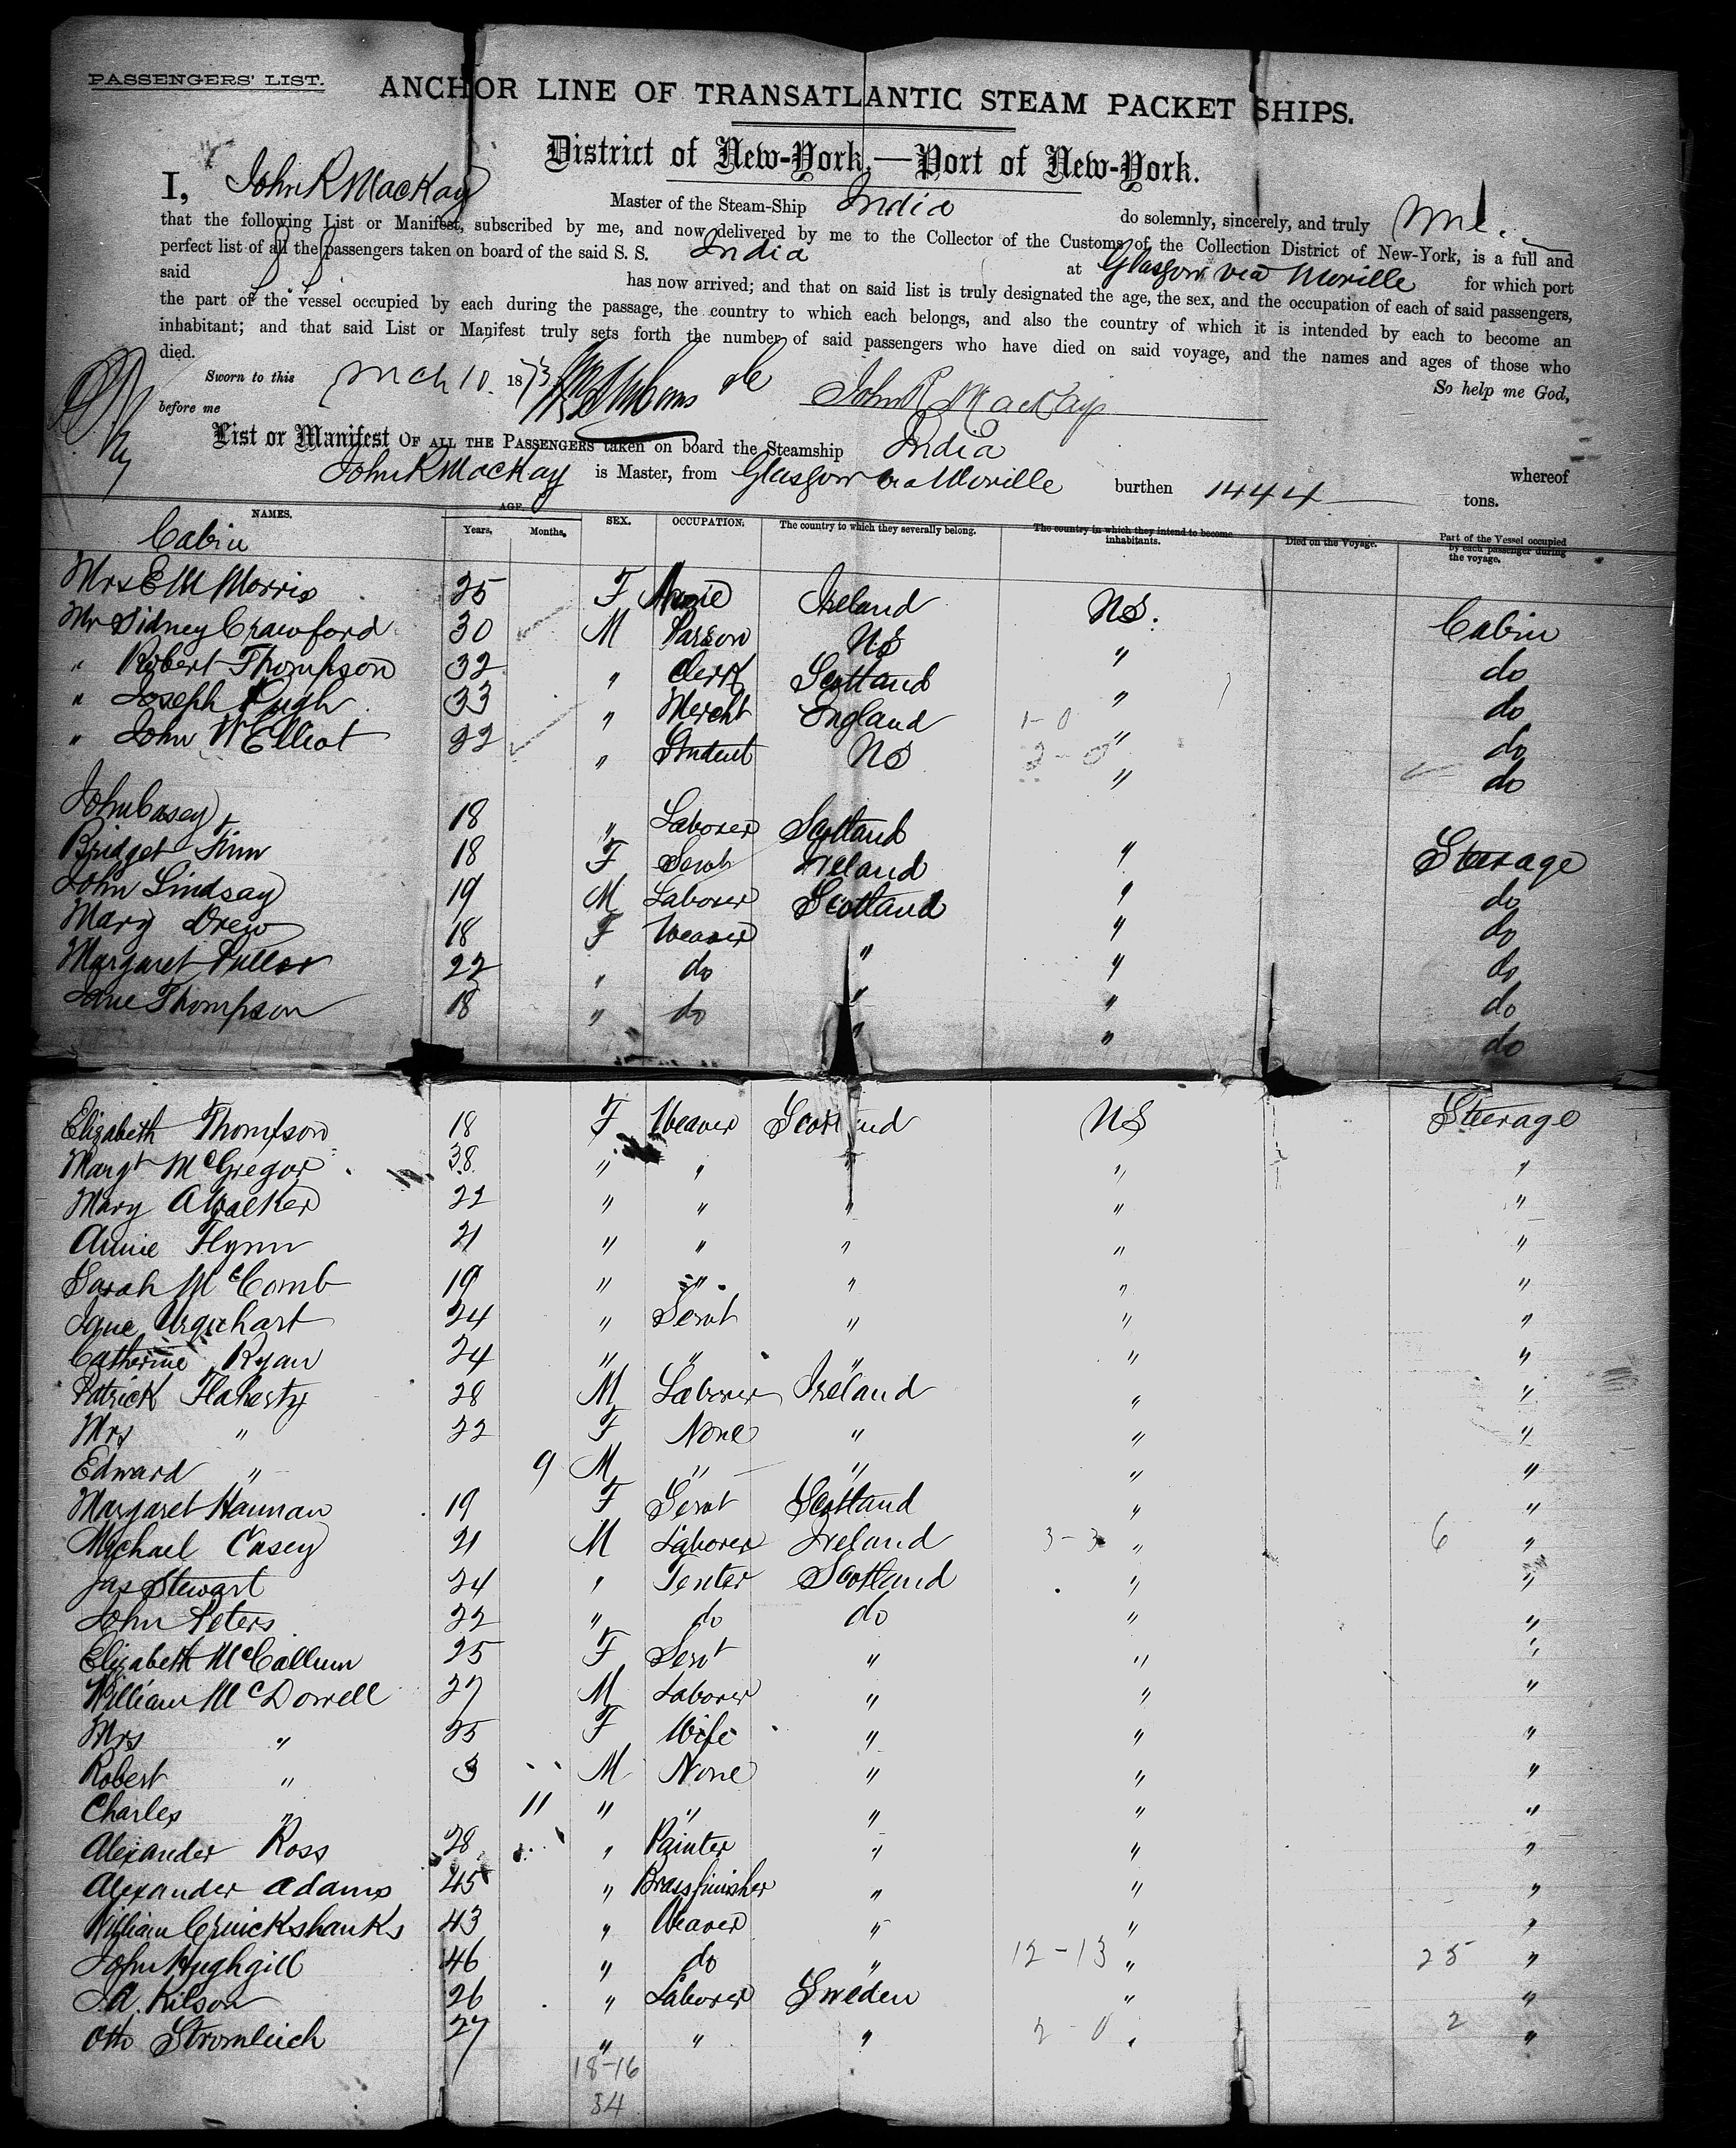 PASSENGERS' LIST.
ANCHOR LINE OF TRANSATLANTIC STEAM PACKET SHIPS.
District of New-York,—Port of New-York.
I, John R MacKay Master of the Steam-Ship India do solemnly, sincerely, and truly
that the following List or Manifest, subscribed by me, and now delivered by me to the Collector of the Customs of the Collection District of New-York, is a full and
perfect list of all the passengers taken on board of the said S. S. India at Glasgow via Moville for which port
said has now arrived; and that on said list is truly designated the age, the sex, and the occupation of each of said passengers,
the part of the vessel occupied by each during the passage, the country to which each belongs, and also the country of which it is intended by each to become an
inhabitant; and that said List or Manifest truly sets forth the number of said passengers who have died on said voyage, and the names and ages of those who
died.
So help me God,
Sworn to this Mch 10. 1873 John R MacKay
before me
List or Manifest OF ALL THE PASSENGERS taken on board the Steamship India whereof
John R MacKay is Master, from Glasgow via Moville burthen 1444 tons.
NAMES. AGE. Years. Months. SEX. OCCUPATION. The country to which they severally belong. The country in which they intend to become inhabitants. Died on the Voyage. Part of the Vessel occupied by each passenger during the voyage.
Cabin
Mrs E M Morris 25 F None Ireland US. Cabin
Mr Sidney Crawford 30 M Parson US " do
" Robert Thompson 32 " Clerk Scotland " do
" Joseph Pugh 33 " Mercht England 1-0 " do
" John W Elliot 22 " Student US 2-0 " do
John Casey 18 " Laborer Scotland " Steerage
Bridget Finn 18 F Servt Ireland " do
John Lindsay 19 M Laborer Scotland " do
Mary Drew 18 F Weaver " " do
Margaret Puller 22 " do " " do
Jane Thompson 18 " do " " do
Elizabeth Thompson 18 F Weaver Scotland US Steerage
Margt McGregor 38 " " " " "
Mary A Walker 22 " " " " "
Annie Flynn 21 " " " " "
Sarah McComb 19 " " " " "
Jane Urquhart 24 " Servt " " "
Catherine Ryan 24 " " " " "
Patrick Flaherty 28 M Laborer Ireland " "
Mrs " 22 F None " " "
Edward " 9 M " " " "
Margaret Hannan 19 F Servt Scotland " "
Michael Casey 21 M Laborer Ireland 3-3 " 6 "
Jas Stewart 24 " Tenter Scotland " "
John Peters 22 " do do " "
Elizabeth McCallum 25 F Servt " " "
William McDowell 27 M Laborer " " "
Mrs " 25 F Wife " " "
Robert " 3 M None " " "
Charles " 11 " " " " "
Alexander Ross 28 " Painter " " "
Alexander Adams 45 " Brassfinisher " " "
William Cruickshanks 43 " Weaver " " "
John Hughgill 46 " do " 12-13 " 25 "
J.A. Kilson 26 " Laborer Sweden " "
Otto Stromleich 27 " " " 2-0 " 2 "
18-16
34